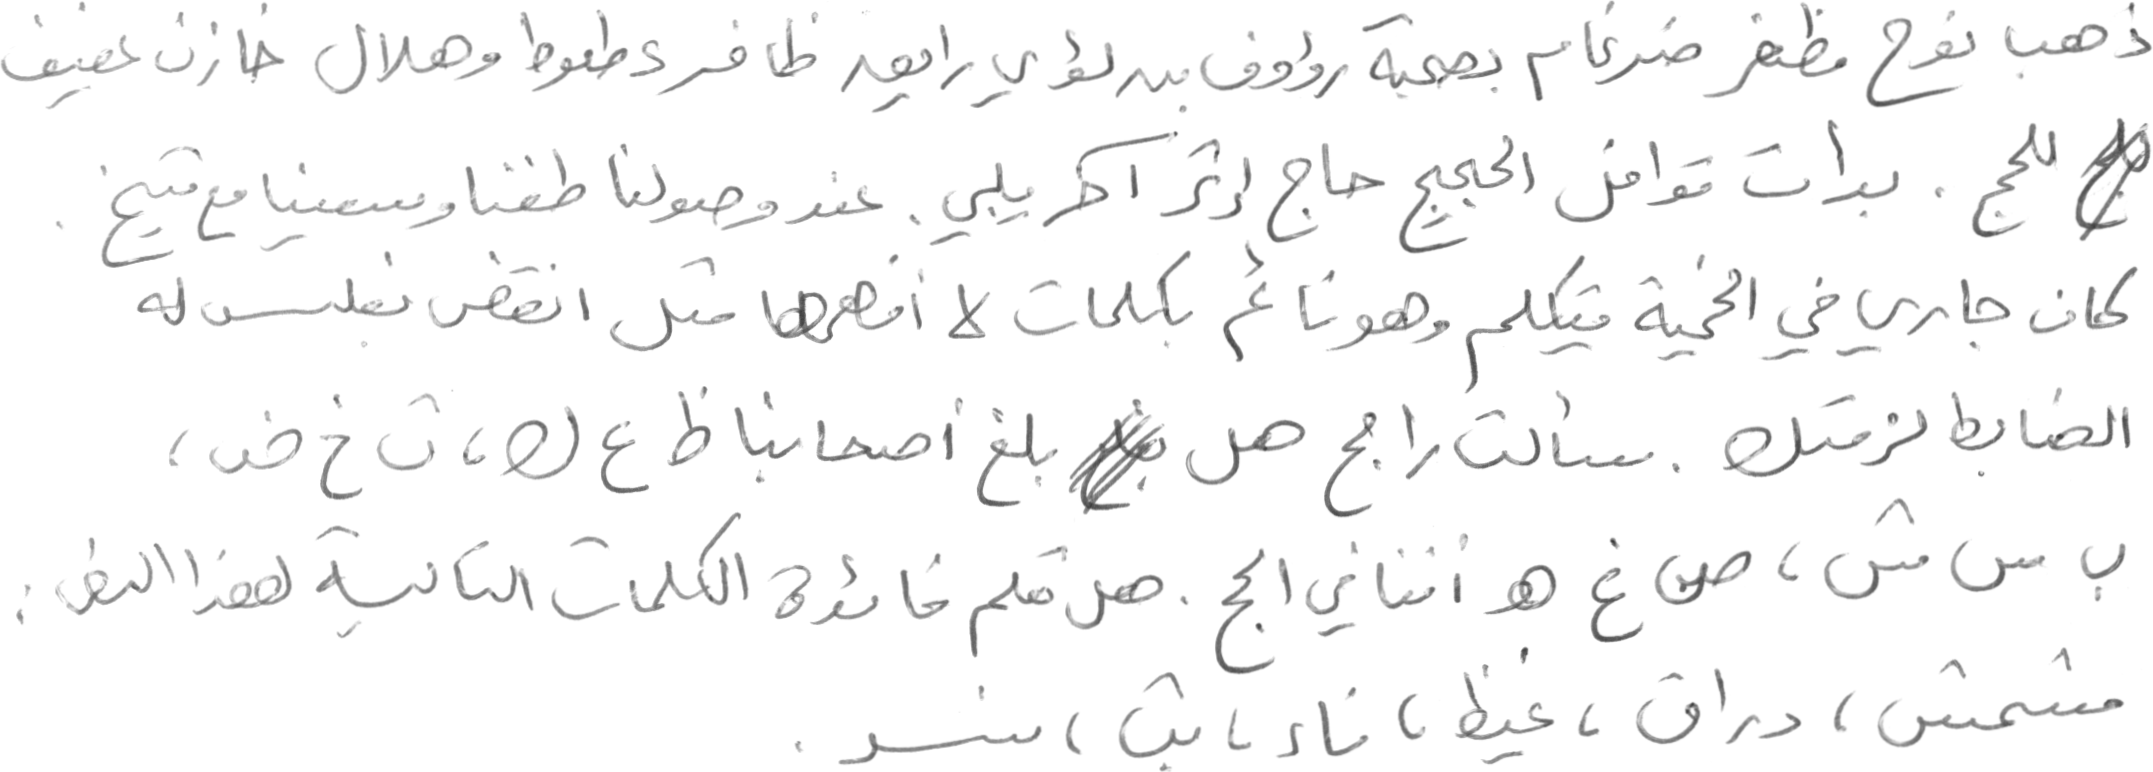 ذهب نوح مظفر ضرغام بصحبة رؤوف بن لؤي رايعه ظافر عطعوط وهلال خازن عفيف
للحج . بدأت قوافل الحجيج حاج إثر آخر يلبي . عند وصولنا طفنا وسعينا مع شيخ .
كان جاري في الخيمة يتكلم وهو نائم بكلمات لا أفهمها مثل انقض نفلس له
الضابط لزمتك . سألت رابح هل بلغ أصحابنا ظ ع ك ، ث خ ض ،
ب س ش ، ص غ ه أننا في الحج . هل قلم فائدة الكلمات التالية لهذا النص :
مشمش ، دراق ، غيظ ، ناء ، بث ، نسر .